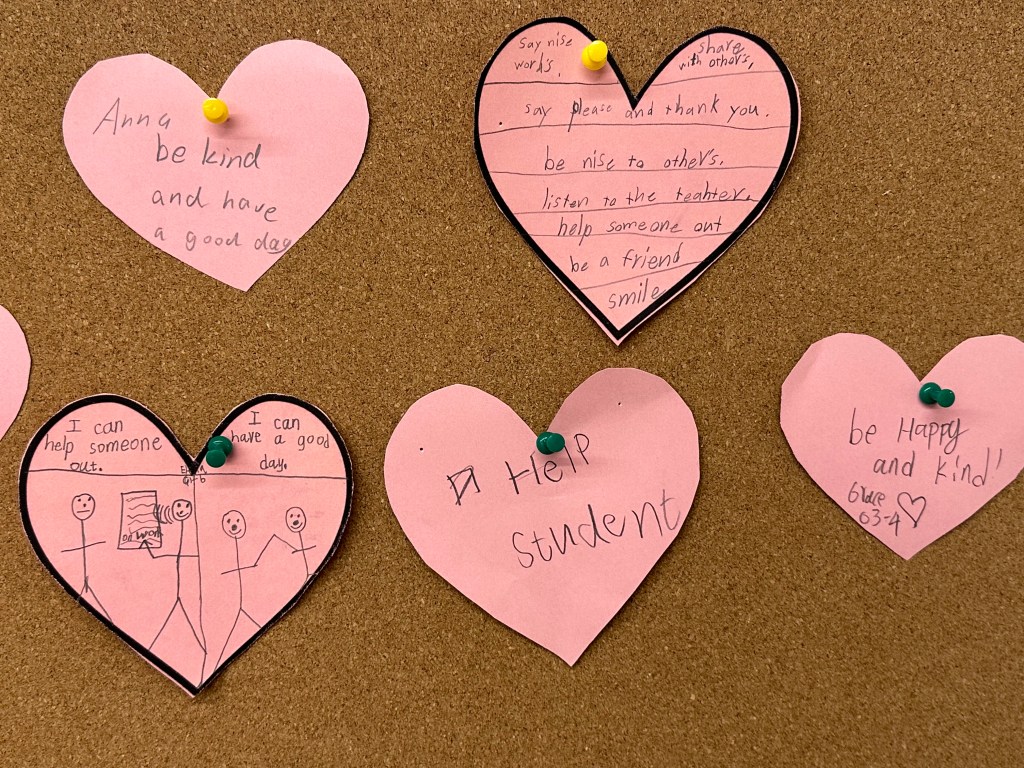 Anna
be kind
and have
a good day
say nise
words,
share
with other's,
say please and thank you.
be nise to other's.
listen to the teahter,
help someone out
be a friend
smile
I can
help someone
out.
I can
have a good
day.
Help
student
be Happy
and kind!
Grace
03-4